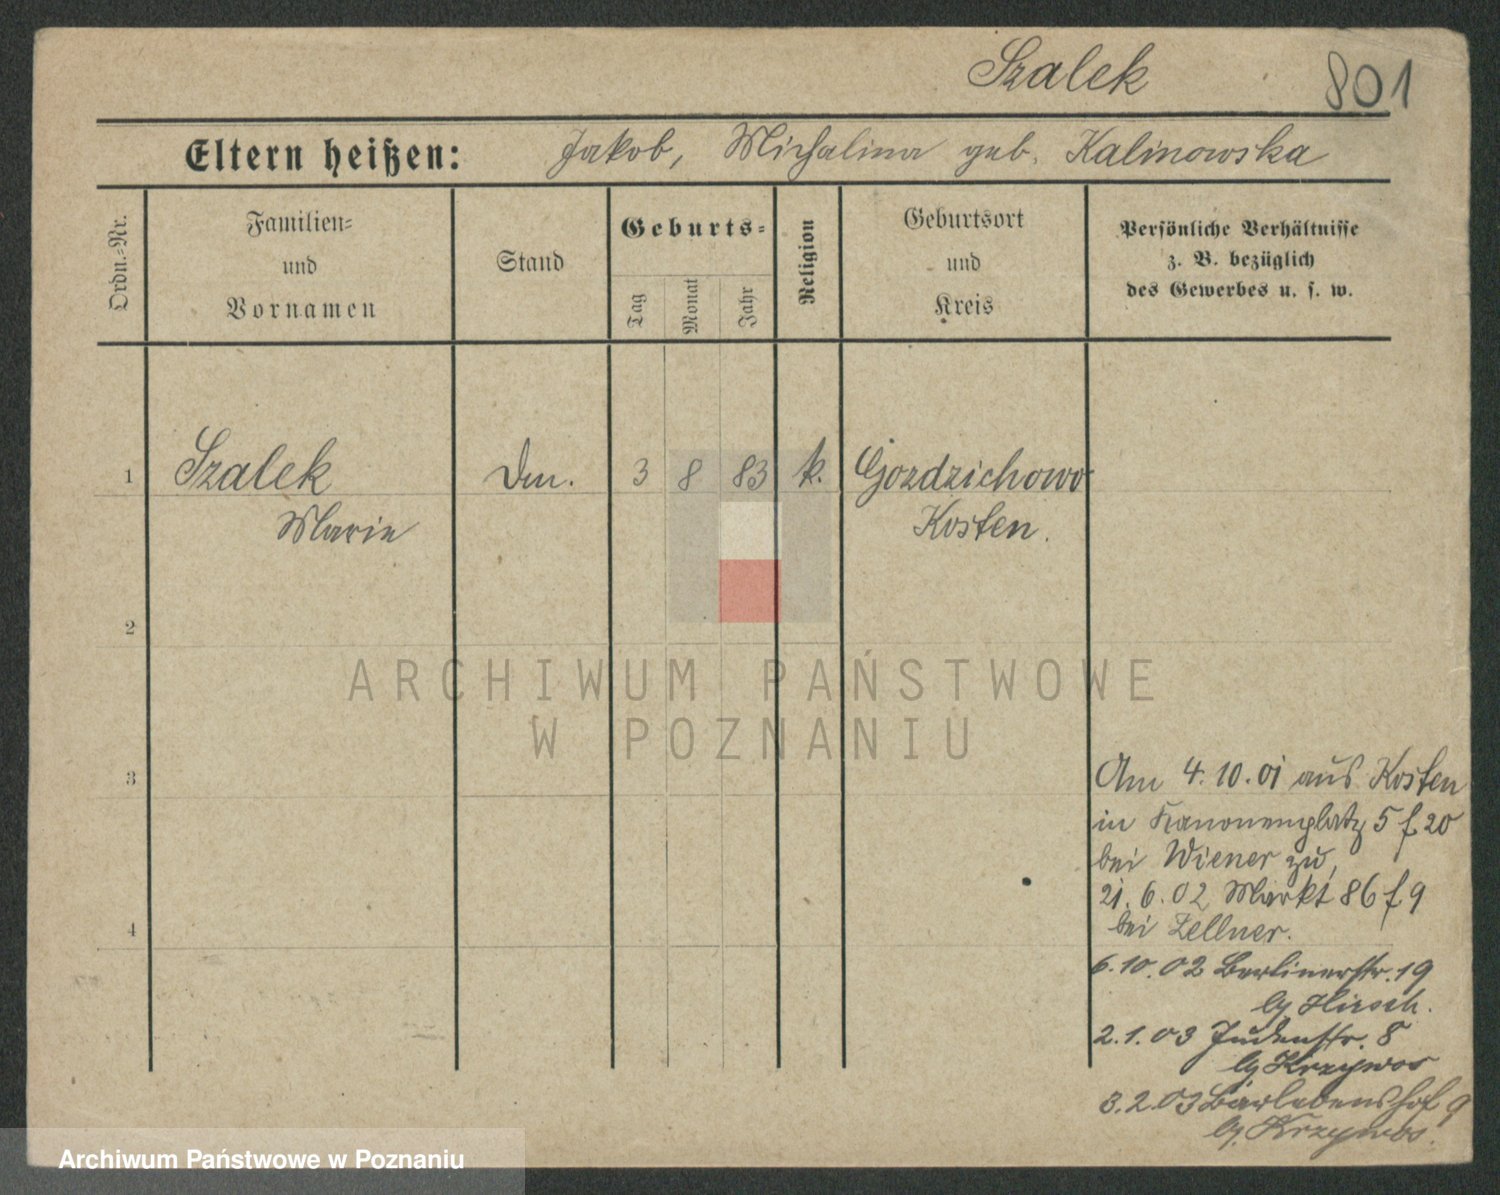 Szalek 801
Eltern heißen: Jakob, Michalina geb. Kalinowska
Ordn.=Nr.
Familien=
und
Vornamen
Stand
Geburts=
Tag
Monat
Jahr
Religion
Geburtsort
und
Kreis
Persönliche Verhältnisse
z. B. bezüglich
des Gewerbes u. s. w.
1 Szalek 3 8 83 k. Gozdzichowo
Marie Kosten.
2
ARCHIWUM PAŃSTWOWE
W POZNANIU
3
4
Am 4.10.01 aus Kosten
in Kanonenplatz 5 f 20
bei Wiener zu,
21.6.02 Markt 86 f 9
bei Zellner.
6.10.02 Berlinerstr. 19
by Hirsch.
2.1.03 Judenstr. 8
by Krzywos
3.2.03 Bärlebenshof 9
by. Krzywos.
Archiwum Państwowe w Poznaniu